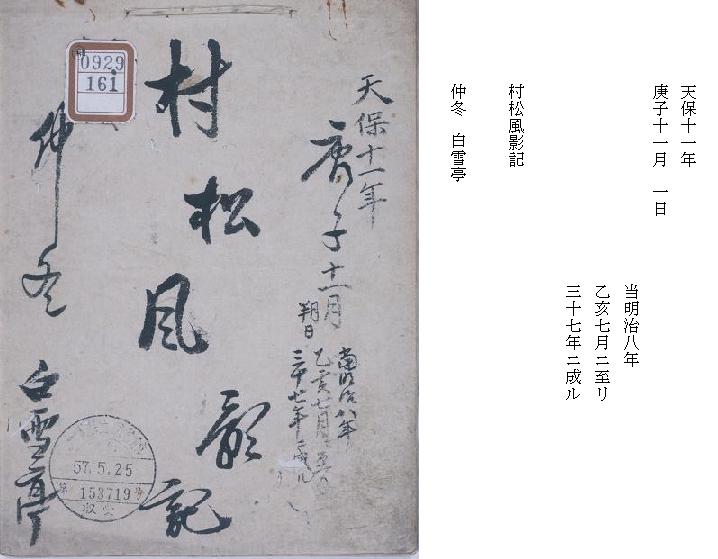 天保十一年
庚子十一月 一日
当明治八年
乙亥七月ニ至リ
三十七年ニ成ル
村松風影記
仲冬 白雪亭
天保十一年
庚子十一月
朔日
当明治八年
乙亥七月ニ至リ
三十七年ニ成ル
村松風影記
仲冬 白雪亭
0929
161
57.5.25
153719